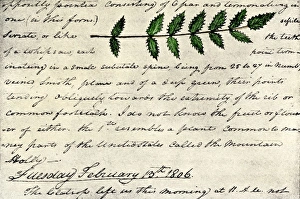 oppositly pointed Consisting of 6 par and terminating in
one (in this form)
serrate, or like the teeth
of a whipsaw, each point ter-
minating in a small subulate spine, being from 25 to 27 in numb.
veined, smooth, plane and of a deep green, their points
tending obliquely towards the extremity of the rib or
common footstalk. I do not know the fruit or flower
of either. the 1st resembles a plant common to ma-
ny parts of the United States called the Mountain
Holly.
Tuesday February 13th 1806.
The Clatsops left us this morning at 11 A.M. not